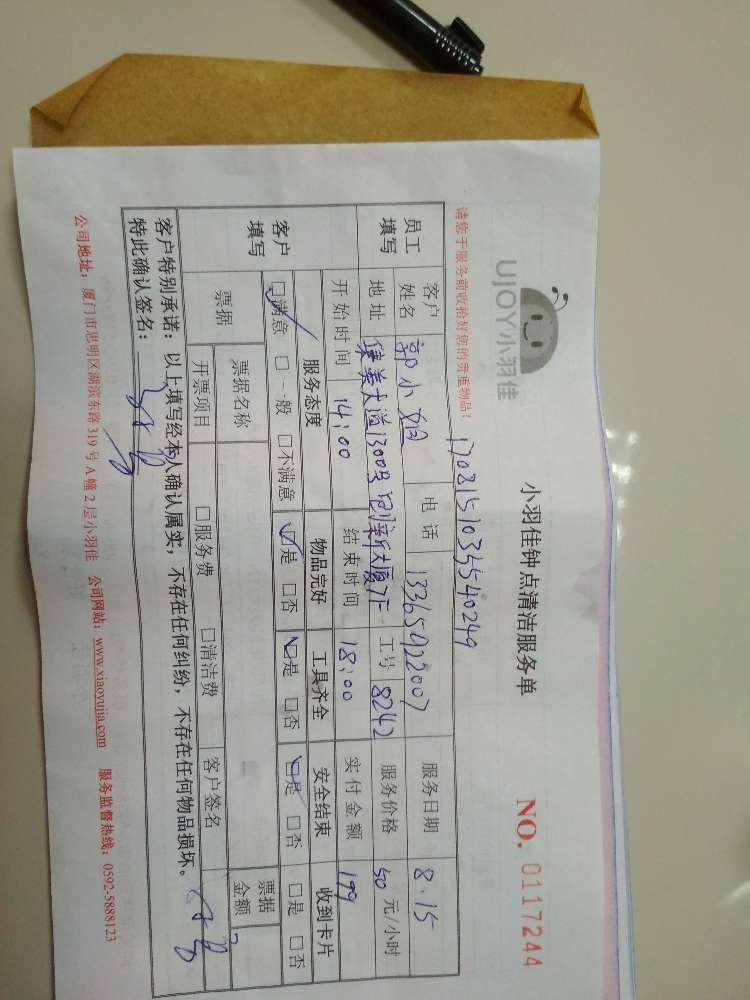 UJOY小羽佳
小羽佳钟点清洁服务单
NO. 0117244
请您于服务前收拾好您的贵重物品！
1708151034540249
员工填写
客户姓名 郭小 电话 13365922007 服务日期 8.15
地址 集美大道1300号创新大厦7F 工号 8242 服务价格 50 元/小时
开始时间 14:00 结束时间 18:00 实付金额 199
客户填写
服务态度 物品完好 工具齐全 安全结束 收到卡片
☑满意 □一般 □不满意 ☑是 □否 ☑是 □否 ☑是 □否 □是 □否
票据 票据名称 票据金额
开票项目 □服务费 □清洁费 客户签名
客户特别承诺：以上填写经本人确认属实，不存在任何纠纷，不存在任何物品损坏。
特此确认签名：
公司地址：厦门市思明区湖滨东路319号A幢2层小羽佳 公司网站：www.xiaoyujia.com 服务监督热线：0592-5888123